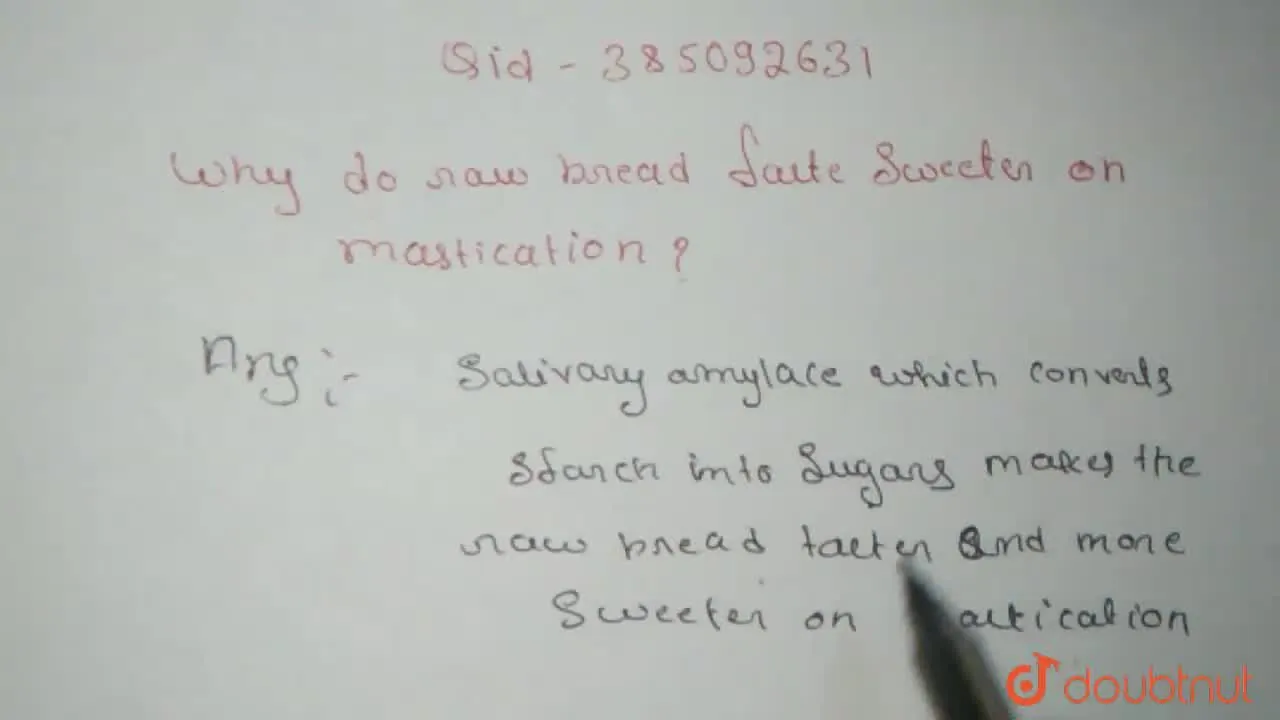 Qid - 385092631
Why do raw bread taste Sweeter on
mastication?
Ans :-
Salivary amylace which converts
starch into Sugars makes the
raw bread taster and more
Sweeter on
doubtnut